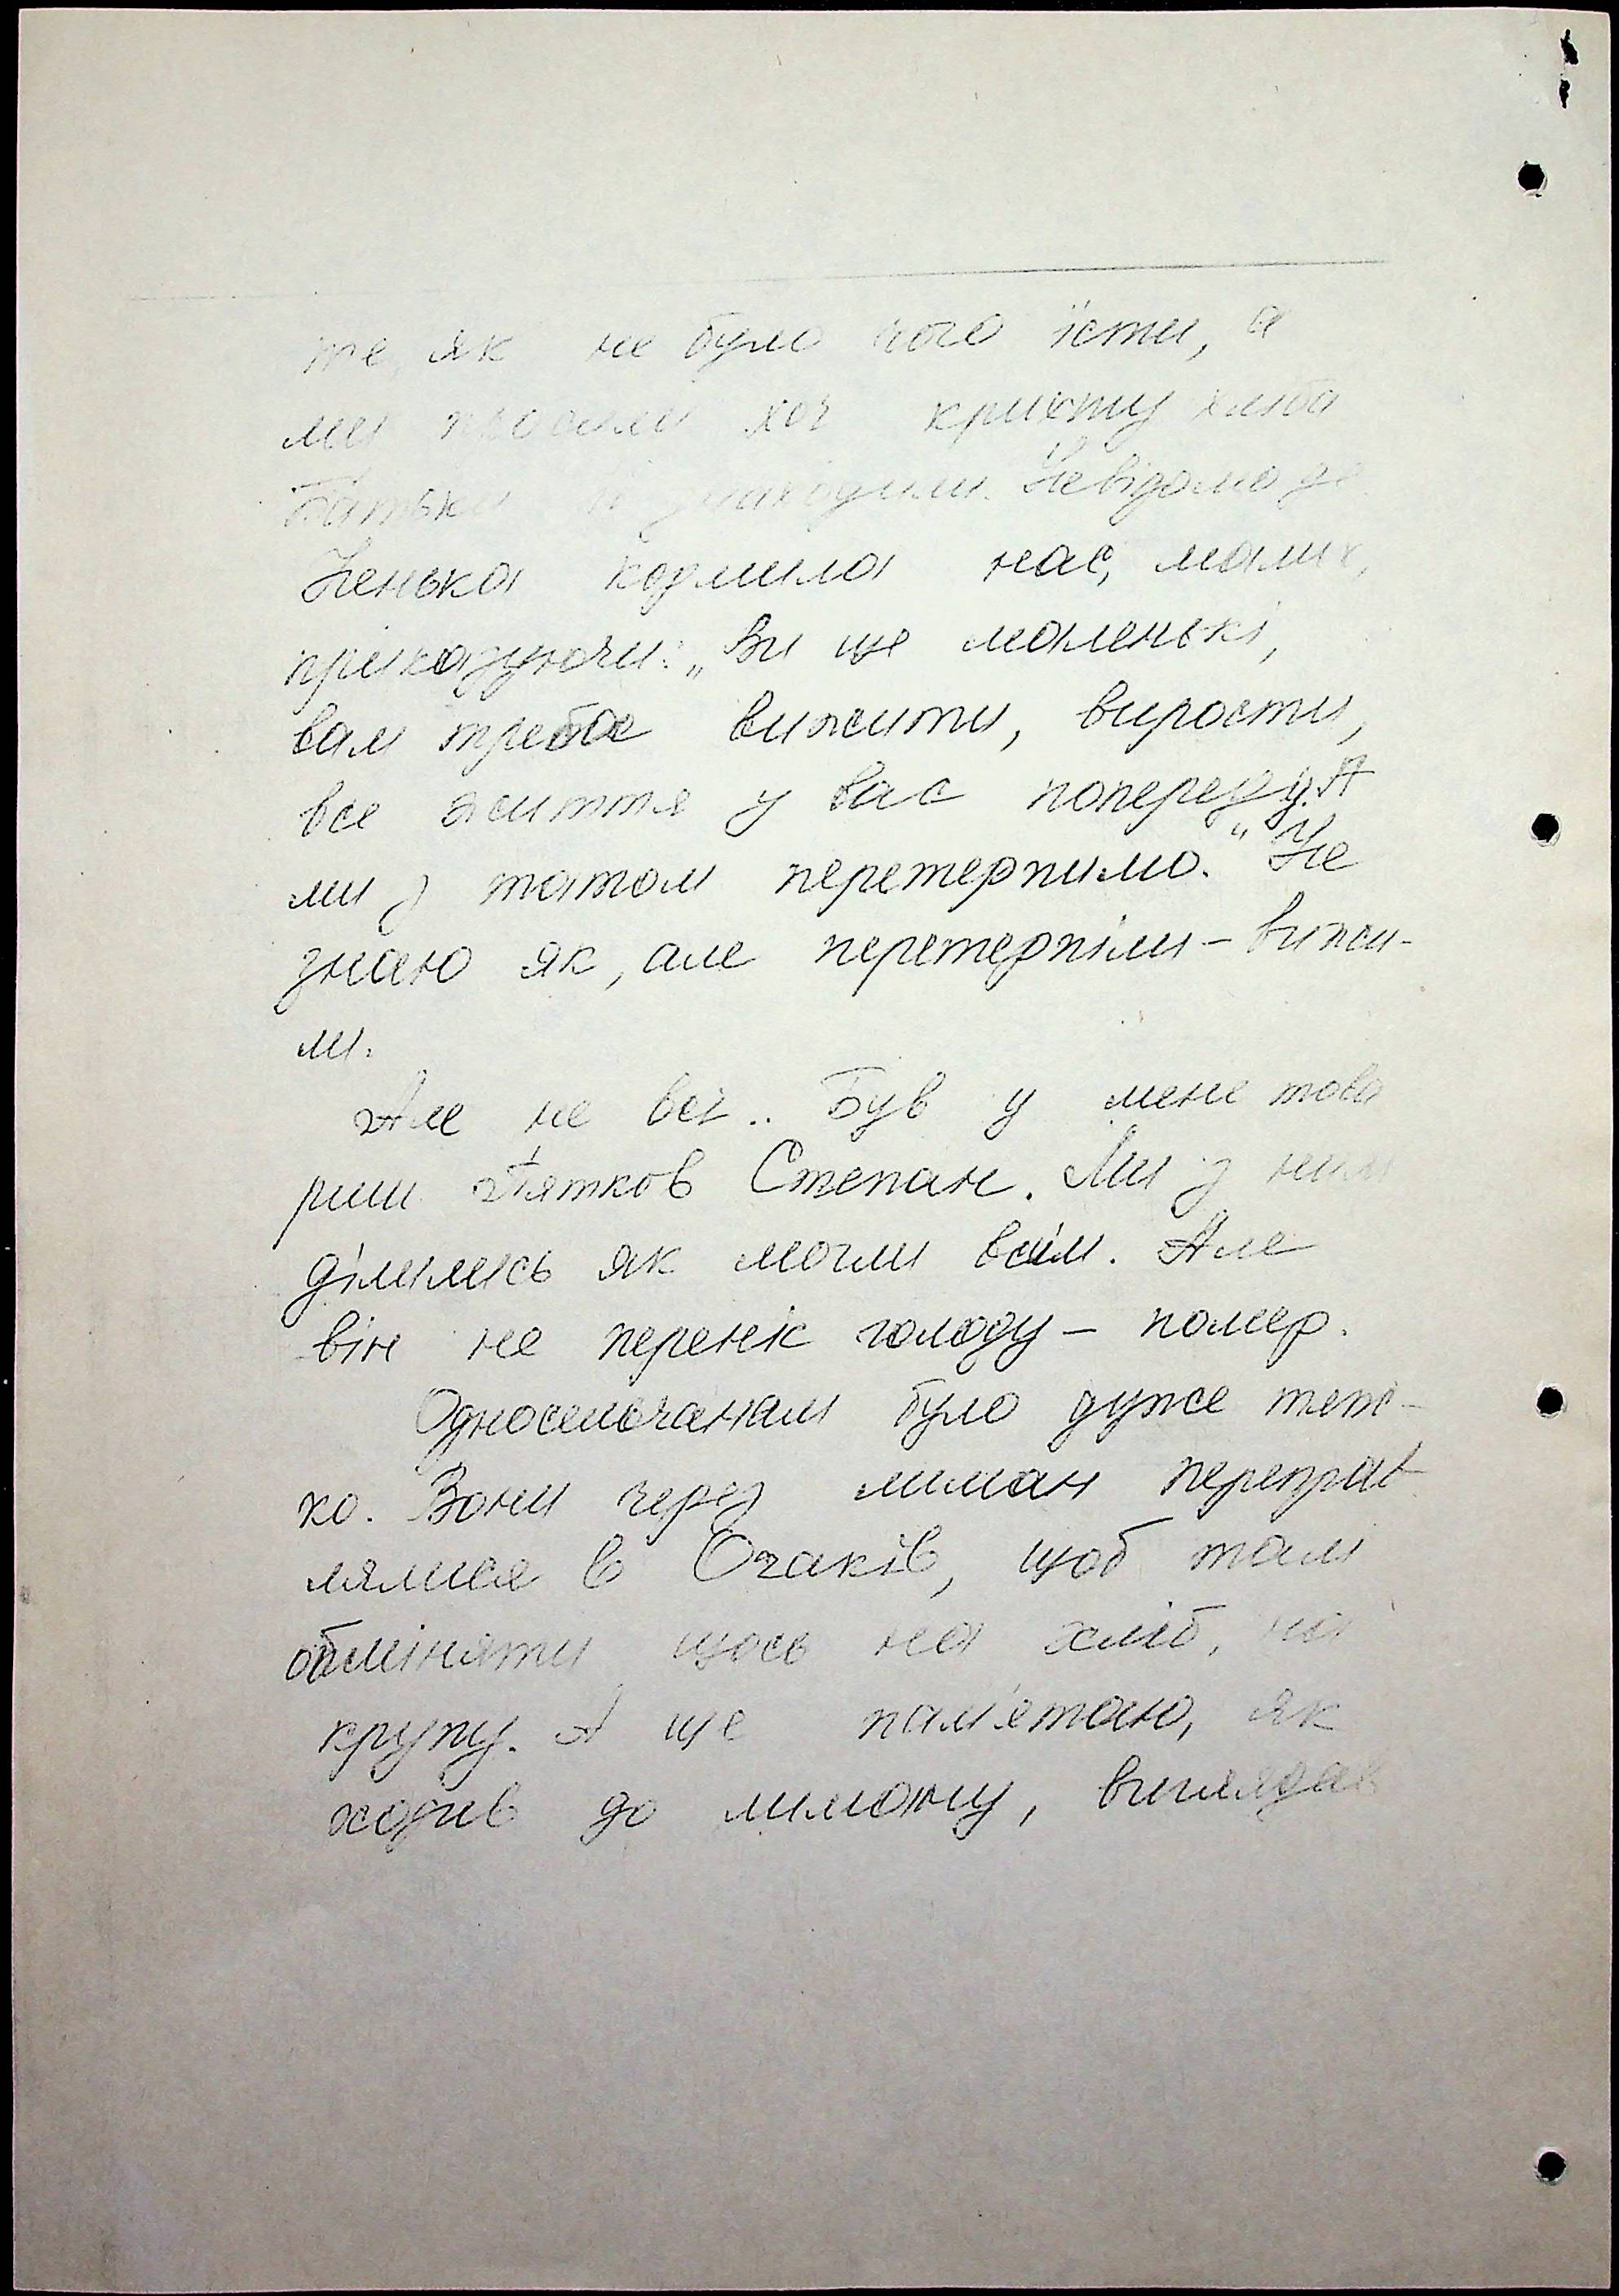 те, як не було чого їсти, а
ми просили хоч крихту хліба
Батьки й знаходили. Невідомо де.
Ненька кормила нас, малих,
приказуючи: „Ви ще маленькі,
вам треба вижити, вирости,
все життя у вас попереду. А
ми з татом перетерпимо." Не
знаю як, але перетерпіли – вижи-
ли.
Але не всі.. Був у мене това
риш Пятков Степан. Ми з ним
ділились як могли всім. Але
він не переніс голоду – помер.
Односельчанам було дуже теж-
ко. Вони через лиман переправ-
лялися в Очаків, щоб там
обміняти щось на хліб, на
крупу. А ще пам'ятаю, як
ходив до лиману, виглядав